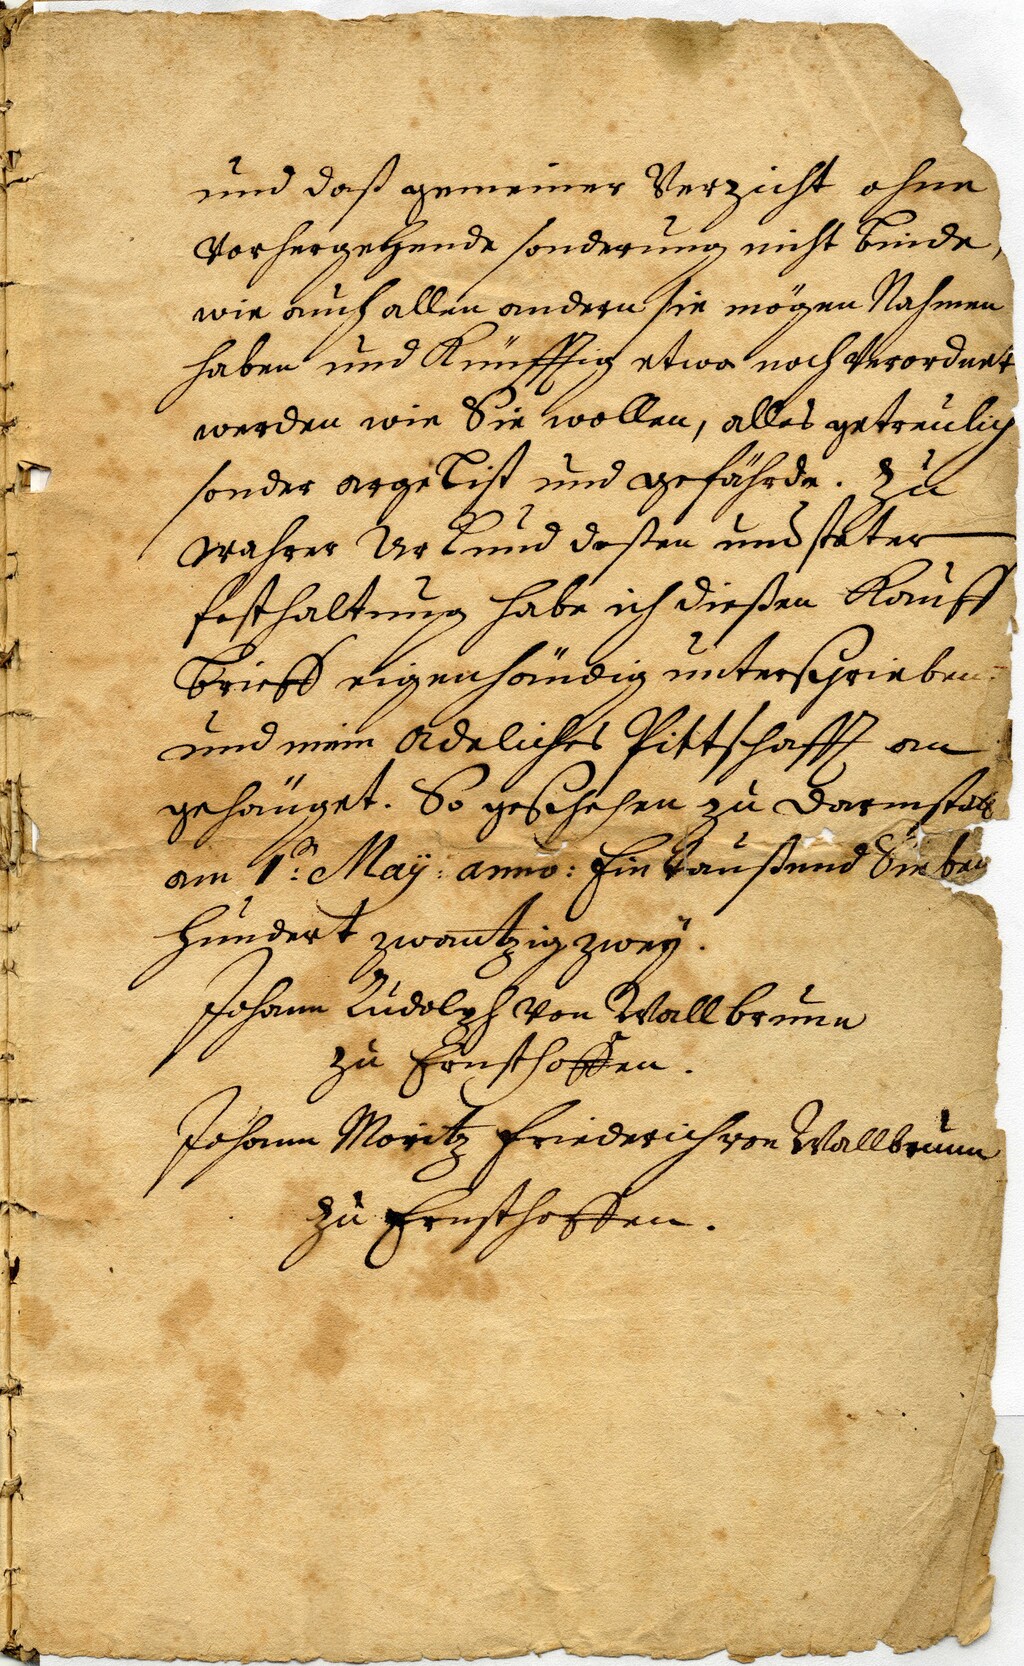 und daß gemeiner Verzicht ohne
vorhergehende sonderung nicht binde,
wie auch allen andern sie mögen Nahmen
haben und Künfftig etwa noch verordnet
werden wie Sie wollen, alles getreulich
sonder argelist und gefährde. Zu
wahrer Urkund deßen und stäter
festhaltung habe ich dießen Kauff
brieff eigenhändig unterschrieben
und mein Adeliches Pittschafft an
gehänget. So geschehen zu Darmstatt
am 1: May: anno: Ein taußend Sieben
hundert zwantzig zwey.
Johann Rudolph von Wallbrunn
zu Ernsthoffen.
Johann Moritz Friederich von Wallbrunn
zu Ernsthoffen.